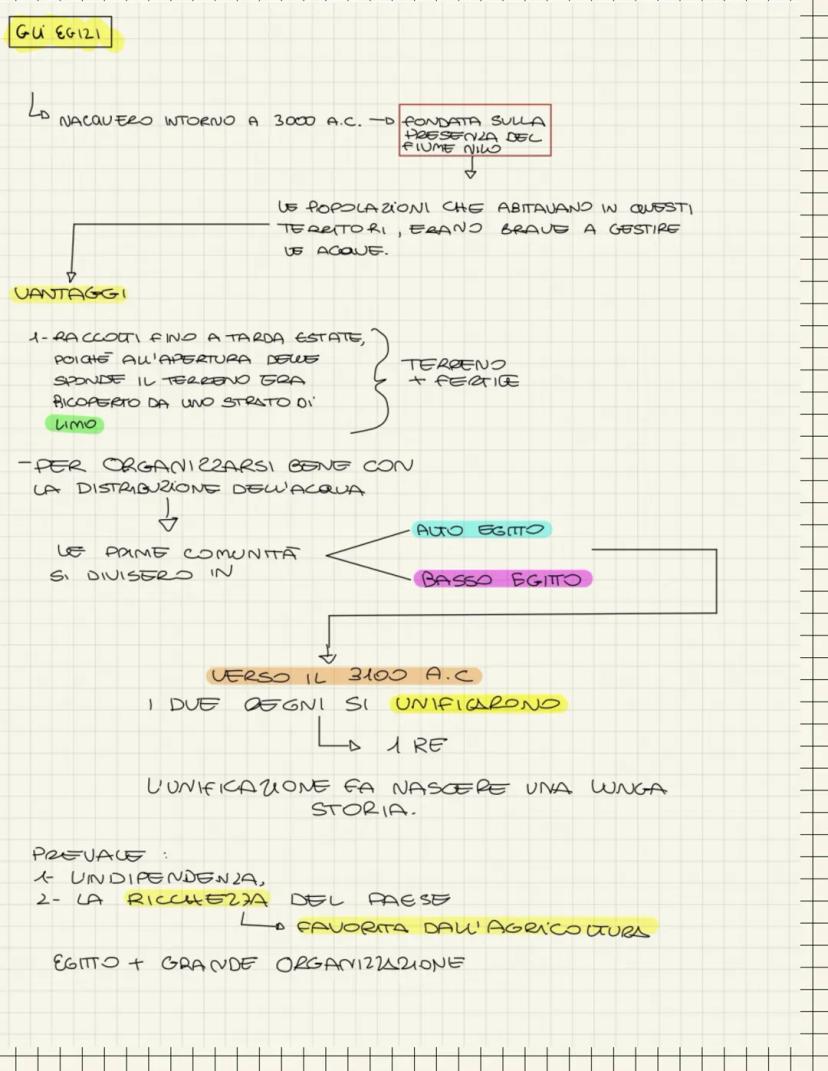 GLI EGIZI
NACQUERO INTORNO A 3000 A.C. → FONDATA SULLA
PRESENZA DEL
FIUME NILO
LE POPOLAZIONI CHE ABITAVANO IN QUESTI
TERRITORI, ERANO BRAVE A GESTIRE
LE ACQUE.
VANTAGGI
1- RACCOLTI FINO A TARDA ESTATE,
POICHÈ ALL'APERTURA DELLE
SPONDE IL TERRENO ERA
RICOPERTO DA UNO STRATO DI
LIMO
TERRENO
+ FERTILE
- PER ORGANIZZARSI BENE CON
LA DISTRIBUZIONE DELL'ACQUA
LE PRIME COMUNITÀ
SI DIVISERO IN
ALTO EGITTO
BASSO EGITTO
VERSO IL 3100 A.C
I DUE REGNI SI UNIFICARONO
1 RE
L'UNIFICAZIONE FA NASCERE UNA LUNGA
STORIA.
PREVALE :
1- L'INDIPENDENZA,
2- LA RICCHEZZA DEL PAESE
FAVORITA DALL'AGRICOLTURA
EGITTO + GRANDE ORGANIZZAZIONE